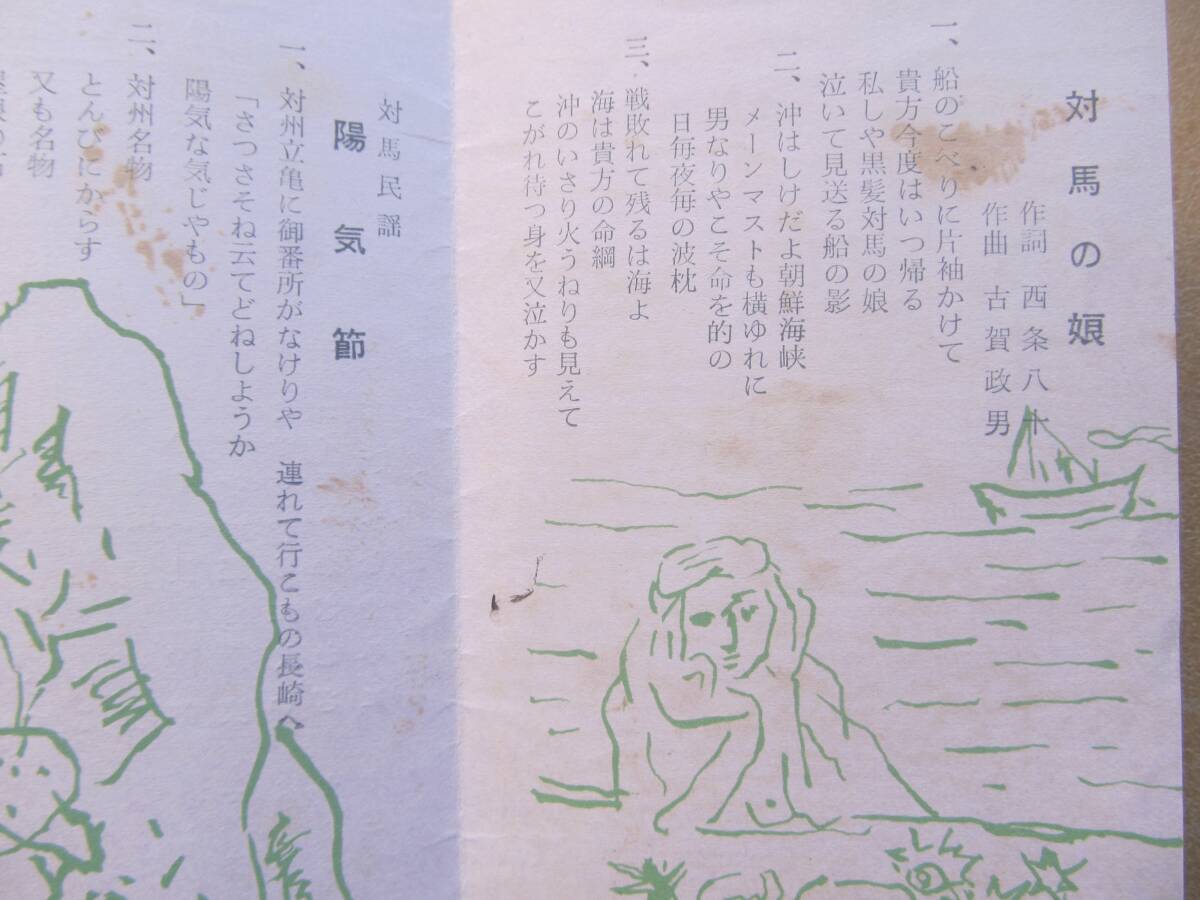 対馬の娘
作詞 西条八十
作曲 古賀政男
一、船のこべりに片袖かけて
貴方今度はいつ帰る
私しや黒髪対馬の娘
泣いて見送る船の影
二、沖はしけだよ朝鮮海峡
メーンマストも横ゆれに
男なりやこそ命を的の
日毎夜毎の波枕
三、戦敗れて残るは海よ
海は貴方の命綱
沖のいさり火うねりも見えて
こがれ待つ身を又泣かす
対馬民謡
陽気節
一、対州立亀に御番所がなけりや 連れて行こもの長崎へ
「さつさそね云てどねしようか
陽気な気じやもの」
二、対州名物
とんびにからす
又も名物